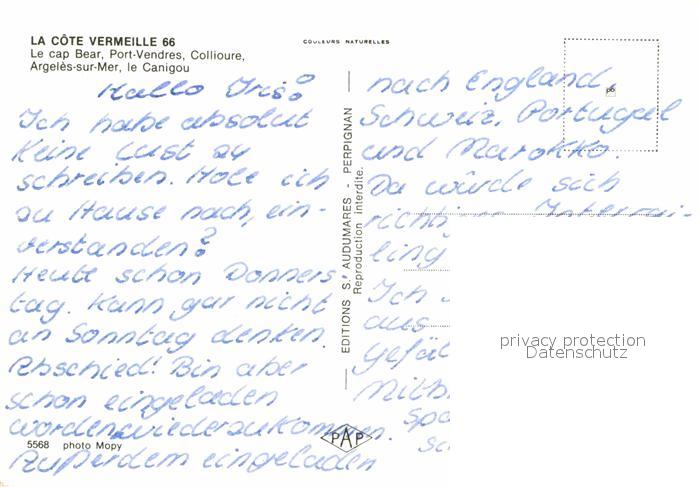 LA CÔTE VERMEILLE 66
Le cap Bear, Port-Vendres, Collioure,
Argelès-sur-Mer, le Canigou
COULEURS NATURELLES
Hallo Iris!
Ich habe absolut
keine Lust zu
schreiben. Hole ich
zu Hause nach, ein-
verstanden?
Heute schon Donners
tag. Kann gar nicht
an Sonntag denken.
Abschied! Bin aber
schon eingeladen
worden wiederzukommen.
Außerdem eingeladen
5568 photo Mopy
EDITIONS S. AUDUMARES - PERPIGNAN
Reproduction interdite.
PAP
nach England,
Schweiz, Portugal
und Marokko.
Da würde sich
richtig Interrai-
ling
Ich
aus
gefäl
Mitb
Spa
sc
privacy protection
Datenschutz